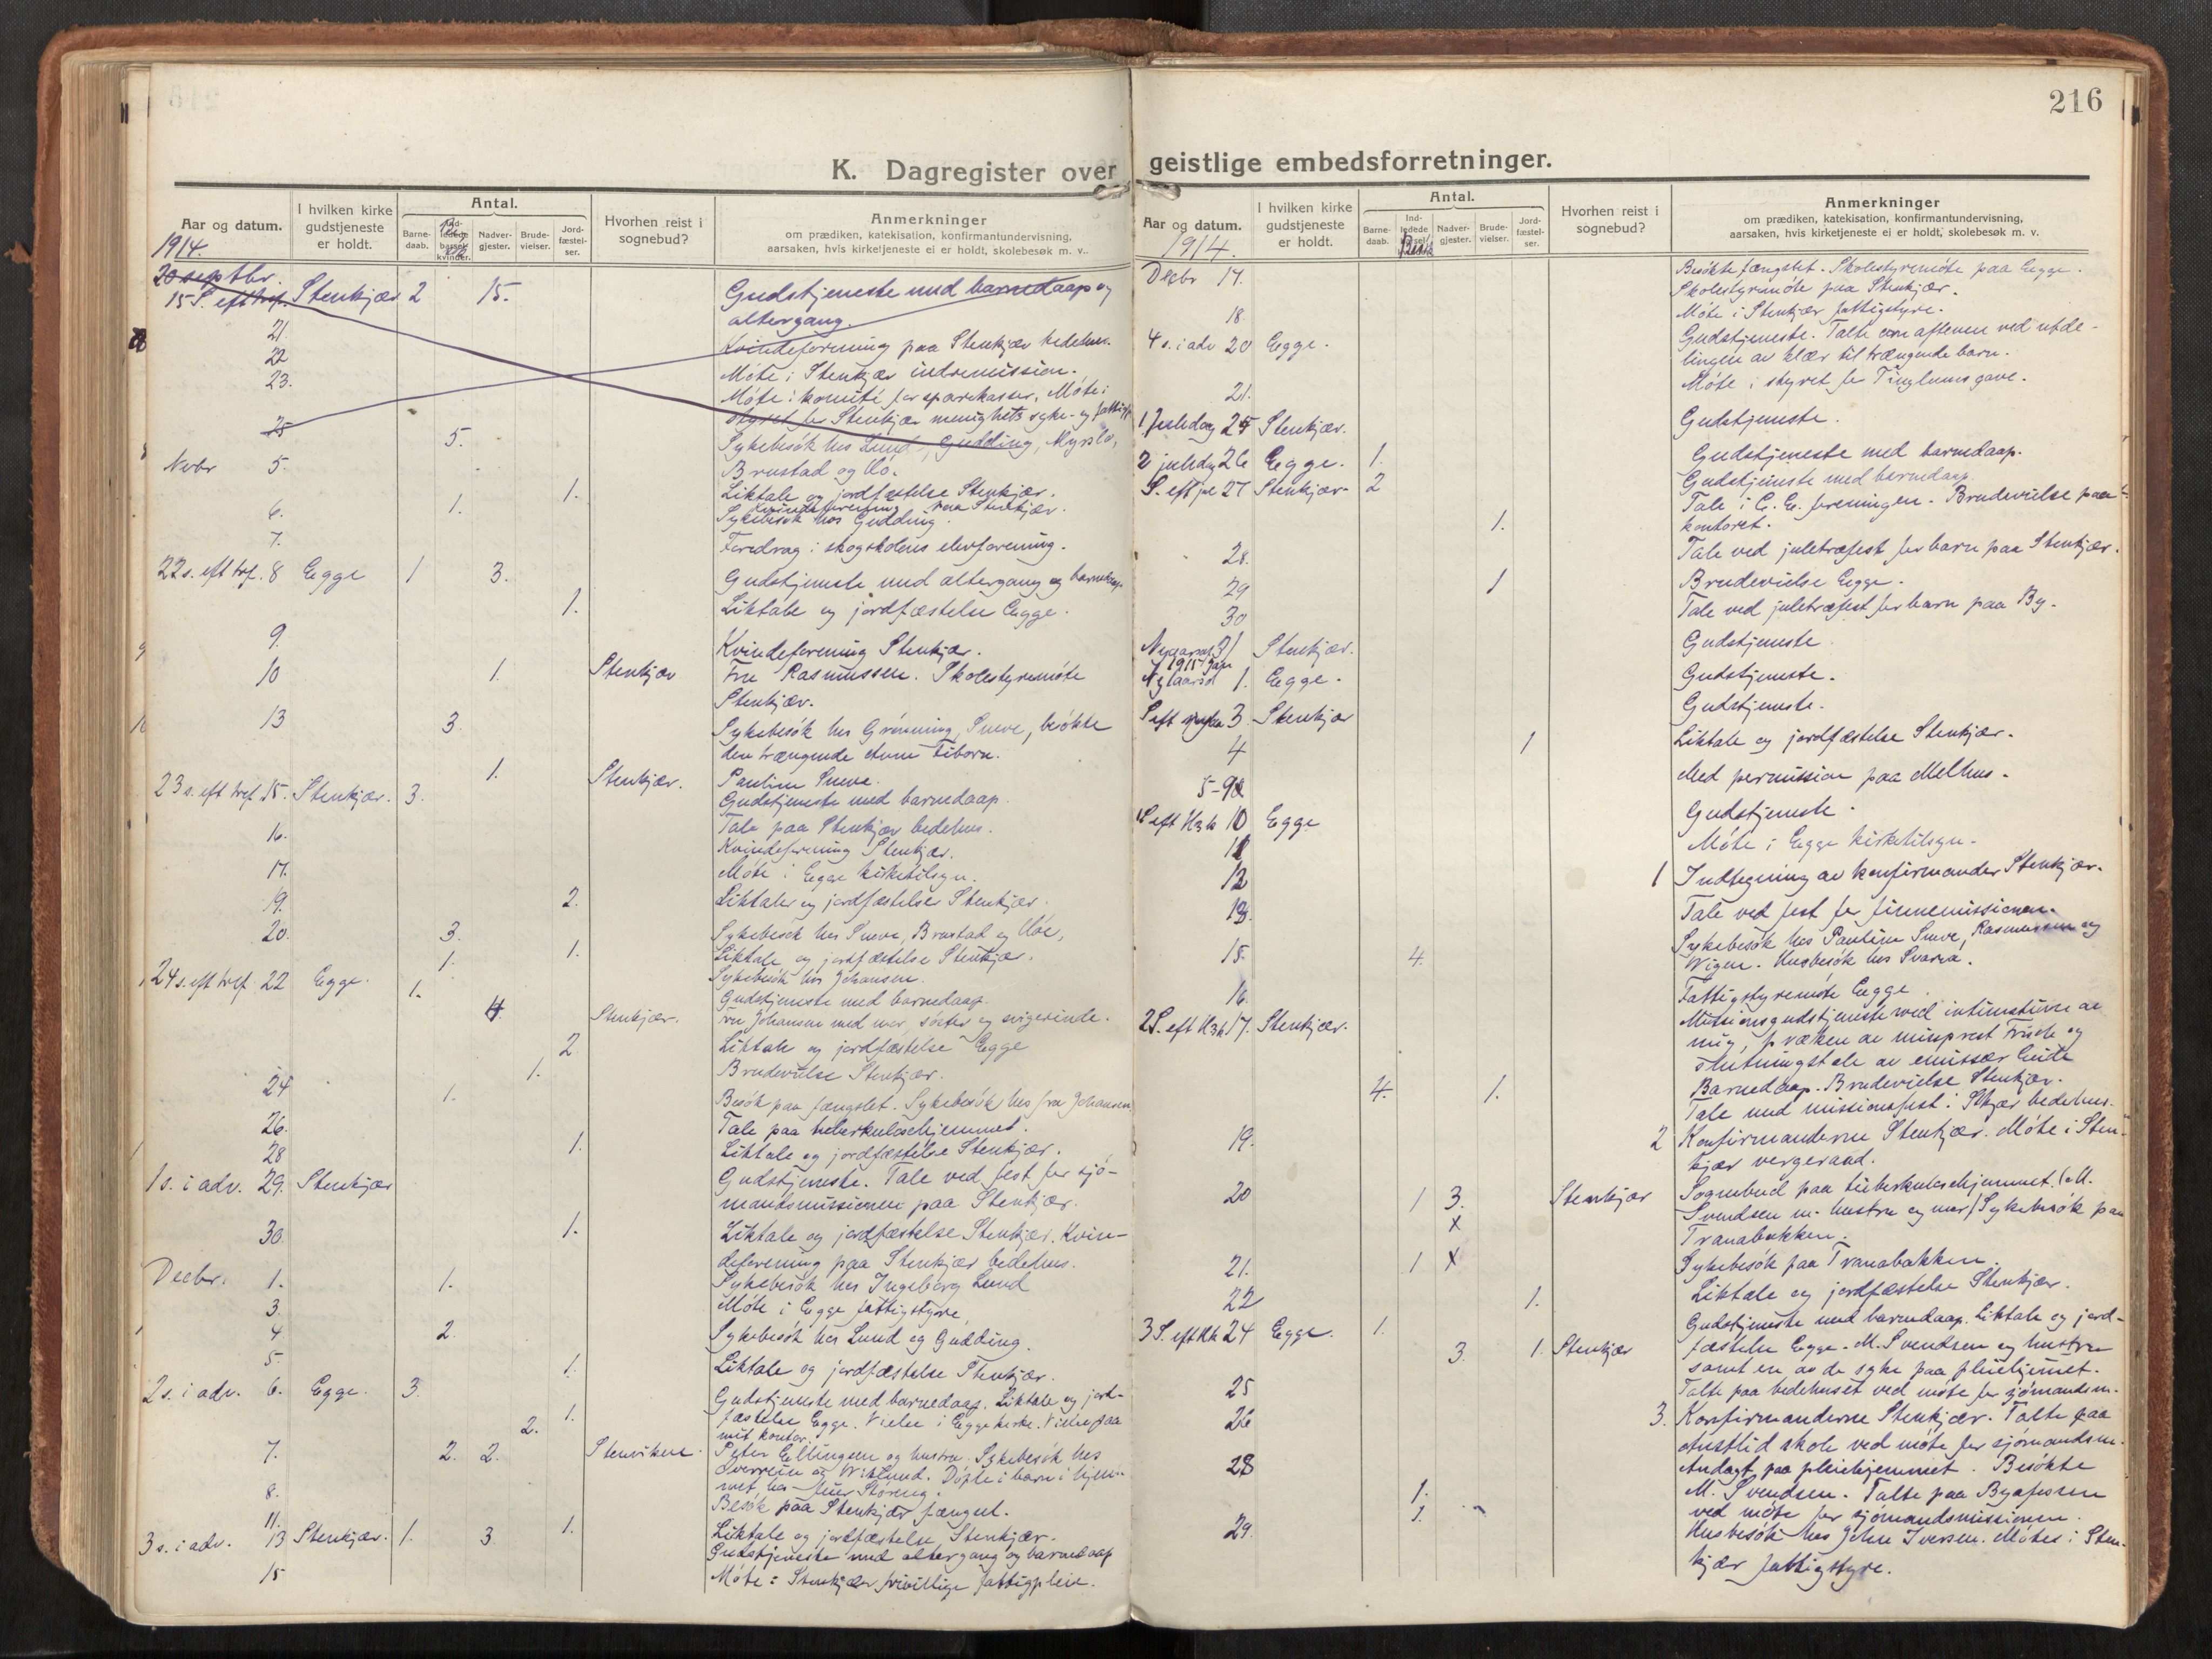 216
K. Dagregister over geistlige embedsforretninger.
Aar og datum.
I hvilken kirke gudstjeneste er holdt.
Antal.
Barne-daab.
Nadver-gjester.
Brude-vielser.
Jord-fæstel-ser.
Hvorhen reist i sognebud?
Anmerkninger
om prædiken, katekisation, konfirmantundervisning,
aarsaken, hvis kirketjeneste ei er holdt, skolebesøk m. v.
1914.
20 septbr.
15 S. eft tref. Stenkjær 2 15. Gudstjeneste med barnedaap og
altergang.
21. Kvindeforening paa Stenkjær bedehus.
22 Møte i Stenkjær indremission.
23. Møte i komité for sparekasser, Møte i
styret for Stenkjær menighets syke- og
25 5. Sykebesøk hos Lund, Gudding,
Novbr 5. Brustad og
1. Liktale og jordfæstelse Stenkjær.
Kvindeforening paa Stenkjær.
6. 1. Sykebesøk hos Gudding.
7. Foredrag i skogskolens elevforening.
22 s. eft tref. 8 Egge 1 3. Gudstjeneste med altergang og barnedaap
1. Liktale og jordfæstelse Egge.
9. Kvindeforening Stenkjær.
10 1. Stenkjær Fru Rasmussen. Skolestyremøte
Stenkjær.
13 3. Sykebesøk hos Grønning, Sneve, besøkte
den trængende
1. Stenkjær. Pauline Sneve.
23 s. eft tref. 15. Stenkjær. 3. Gudstjeneste med barnedaap.
16. Tale paa Stenkjær bedehus.
Kvindeforening Stenkjær.
17. Møte i Egge kirketilsyn.
19. 2. Liktaler og jordfæstelser Stenkjær.
20. 3. Sykebesøk hos Sneve, Brustad og
1. Liktale og jordfæstelse Stenkjær.
1. Sykebesøk hos Johansen.
24 s. eft tref 22 Egge. 1. Gudstjeneste med barnedaap.
4. Stenkjær. Fru Johansen med mor, søster og svigerinde.
2 Liktale og jordfæstelse Egge
1. Brudevielse Stenkjær.
24 1. Besøk paa fængslet. Sykebesøk hos fru Johansen
26. Tale paa tuberkuloschjemmet.
28 1. Liktale og jordfæstelse Stenkjær.
1 s. i adv. 29. Stenkjær Gudstjeneste. Tale ved fest for sjø-
mandsmissionen paa Stenkjær.
30 1. Liktale og jordfæstelse Stenkjær. Kvin-
deforening paa Stenkjær bedehus.
Decbr. 1. 1. Sykebesøk hos Ingeborg Lund
3. Møte i Egge fattigstyre
4 2. Sykebesøk hos Lund og Gudding.
5. 1. Liktale og jordfæstelse Stenkjær.
2 s. i adv. 6. Egge. 3. Gudstjeneste med barnedaap. Liktale og jord-
2. 1. fæstelse Egge. Vielse i Egge kirke. Vielse paa
mit kontor.
7. 2. 2. Peter Ellingsen og hustru. Sykebesøk hos
Døpte i barn i hjem-
met hos
8. Besøk paa Stenkjær fængsel.
11. 1. Liktale og jordfæstelse Stenkjær.
3 s. i adv. 13 Stenkjær. 1. 3 Gudstjeneste med altergang og barnedaap
15 Møte i Stenkjær frivillige fattigpleie.
Aar og datum.
I hvilken kirke gudstjeneste er holdt.
Antal.
Barne-daab.
Nadver-gjester.
Brude-vielser.
Jord-fæstel-ser.
Hvorhen reist i sognebud?
Anmerkninger
om prædiken, katekisation, konfirmantundervisning,
aarsaken, hvis kirketjeneste ei er holdt, skolebesøk m. v.
1914.
Decbr 17. Besøkte fængslet. Skolestyremøte paa Egge.
Skolestyremøte paa Stenkjær.
18. Møte i Stenkjær fattigstyre.
4 s. i adv 20 Egge. Gudstjeneste. Talte om aftenen ved utde-
lingen av klær til trængende barn.
21. Møte i styret for
1 juledag 25 Stenkjær. Gudstjeneste.
2 juledag 26 Egge. 1. Gudstjeneste med barnedaap.
S. eft jul 27 Stenkjær. 2 Gudstjeneste med barnedaap.
Tale i foreningen. Brudevielse paa
1. kontoret.
28. Tale ved juletræfest for barn paa Stenkjær.
29 1 Brudevielse Egge.
30 Tale ved juletræfest for barn paa By.
31 Stenkjær. Gudstjeneste
1915 Jan
1. Egge. Gudstjeneste.
S eft nytaar 3 Stenkjær Gudstjeneste.
4 1 Liktale og jordfæstelse Stenkjær.
5-9 Med permission paa Melhus.
10 Egge Gudstjeneste.
11 Møte i Egge kirketilsyn.
12 1 Indtegning av konfirmander Stenkjær.
13. Tale ved fest for finnemissionen.
15. 4. Sykebesøk hos Pauline Sneve, Rasmussen og
Wigen. Husbesøk hos
16. Fattigstyremøte Egge.
17. Stenkjær. Missionsgudstjeneste med
mig, præken av og
slutningstale av emissær
4. 1. Barnedaap. Brudevielse Stenkjær.
Tale med missionsfest i bedehus.
19. 2 Konfirmanderne Stenkjær. Møte i Sten-
kjær vergeraad.
20 1 3. Stenkjær Sognebud paa tuberkuloschjemmet (M.
x Svendsen m. hustru og mor) Sykebesøk paa
Tranabakken.
21. 1 x Sykebesøk paa Tranabakken.
22 1. Liktale og jordfæstelse Stenkjær.
24 Egge. 1. Gudstjeneste med barnedaap. Liktale og jord-
3. 1. Stenkjær fæstelse Egge. M. Svendsen og hustru
samt en av de syke paa pleiehjemet.
25 Talte paa bedehuset ved møte for sjømandsm.
26 3. Konfirmanderne Stenkjær. Talte paa
skole ved møte for sjømandsm.
28 Andagt paa pleiehjemmet. Besøkte
1. M. Svendsen. Talte paa
1. ved møte for sjømandsmissionen.
29. Husbesøk hos John Iversen. Møtes i Sten-
kjær fattigstyre.